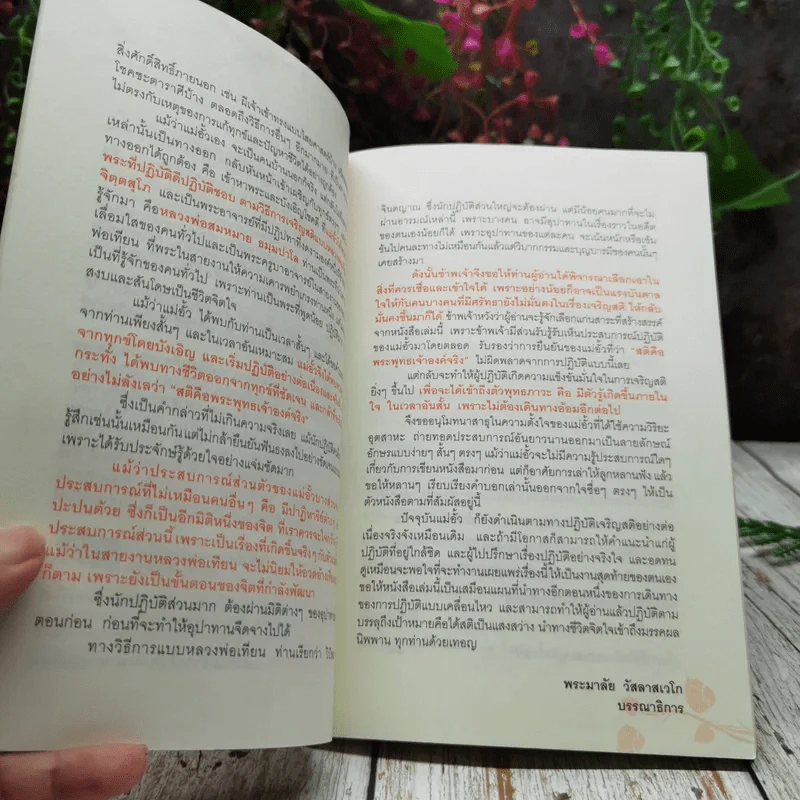 สิ่งศักดิ์สิทธิ์ภายนอก เช่น ผีเจ้าเข้าทรงแบบไสยศาสตร์
โชคชะตาราศีบ้าง ตลอดถึงวิธีการอื่นๆ อีกมากมาย
ไม่ตรงกับเหตุของการแก้ทุกข์และปัญหาชีวิตได้อย่าง
แม้ว่าแม่อั๋วเอง จะเป็นคนบ้านนอกก็จริง
เหล่านั้นเป็นทางออก กลับหันหน้าเข้าเผชิญกับ
ทางออกได้ถูกต้อง คือ เข้าหาพระและบังเอิญโชคดี
พระที่ปฏิบัติดีปฏิบัติชอบ ตามวิธีการเจริญสติแบบ
จิตฺตสุโภ และเป็นพระอาจารย์ที่มีปฏิปทา
รู้จักมา คือหลวงพ่อสมหมาย
เลื่อมใสของคนทั่วไปและเป็นพระครูบาอาจารย์ในสาย
พ่อเทียน ที่พระในสายงานให้ความเคารพยำเกรง
เป็นที่รู้จักของคนทั่วไป เพราะท่านเป็นพระที่พูดน้อย
สงบและสันโดษเป็นชีวิตจิตใจ
แม้ว่าแม่อั๋ว ได้พบกับท่านเป็นเวลาสั้นๆ
จากท่านเพียงสั้นๆ และในเวลาอันเหมาะสม
จากทุกข์โดยบังเอิญ และเริ่มปฏิบัติอย่างต่อเนื่อง
กระทั่ง ได้พบทางชีวิตออกจากทุกข์ที่ชัดเจน
อย่างไม่ลังเลว่า "สติคือพระพุทธเจ้าองค์จริง"
ซึ่งเป็นคำกล่าวที่ไม่เกินความจริงเลย แม้นักปฏิบัติ
รู้สึกเช่นนั้นเหมือนกันแต่ไม่กล้ายืนยันฟันธงลงไปอย่าง
เพราะได้รับประจักษ์รู้ด้วยใจอย่างแจ่มชัดมาก
แม้ว่าประสบการณ์ส่วนตัวของแม่อั๋วบางส่วน
ประสบการณ์ที่ไม่เหมือนคนอื่นๆ คือ มีปาฏิหาริย์
ปะปนด้วย ซึ่งก็เป็นอีกมิติหนึ่งของจิต ที่เราควรจะ
ประสบการณ์ส่วนนี้ เพราะเป็นเรื่องที่เกิดขึ้นจริงๆ
แม้ว่าในสายงานหลวงพ่อเทียน จะไม่นิยมให้
ก็ตาม เพราะยังเป็นขั้นตอนของจิตที่กำลังพัฒนา
ซึ่งนักปฏิบัติส่วนมาก ต้องผ่านมิติต่างๆ ของอุปาทาน
ตอนก่อน ก่อนที่จะทำให้อุปาทานจืดจางไปได้
ทางวิธีการแบบหลวงพ่อเทียน ท่านเรียกว่า
จินตญาณ ซึ่งนักปฏิบัติส่วนใหญ่จะต้องผ่าน แต่มีน้อยคนมากที่จะไม่
ผ่านอารมณ์เหล่านี้ เพราะบางคน อาจมีอุปาทานในเรื่องราวในอดีต
ของคนเองน้อยก็ได้ เพราะอุปาทานของแต่ละคน จะเน้นหนักหรือเข้ม
ข้นไปคนละทางไม่เหมือนกันแล้วแต่วิบากกรรมและบุญบารมีของคนนั้นๆ
เคยสร้างมา
ดังนั้นข้าพเจ้าจึงขอให้ท่านผู้อ่านได้พิจารณาเลือกเอาใน
สิ่งที่ควรเชื่อและเข้าใจได้ เพราะอย่างน้อยก็อาจเป็นแรงบันดาล
ใจให้กับคนบางคนที่มีศรัทธายังไม่มั่นคงในเรื่องเจริญสติ ให้กลับ
มั่นคงขึ้นมาก็ได้ ข้าพเจ้าหวังว่าผู้อ่านจะรู้จักเลือกแก่นสาระที่สร้างสรรค์
จากหนังสือเล่มนี้ เพราะข้าพเจ้ามีส่วนรับรู้รับเห็นประสบการณ์ปฏิบัติ
ของแม่อั๋วมาโดยตลอด รับรองว่าการยืนยันของแม่อั๋วที่ว่า "สติคือ
พระพุทธเจ้าองค์จริง" ไม่ผิดพลาดจากการปฏิบัติแบบนี้เลย
แต่กลับจะทำให้ผู้ปฏิบัติเกิดความแข็งขันมั่นใจในการเจริญสติ
ยิ่งๆ ขึ้นไป เพื่อจะได้เข้าถึงตัวพุทธภาวะ คือ มีตัวรู้เกิดขึ้นภายใน
ใจ ในเวลาอันสั้น เพราะไม่ต้องเดินทางอ้อมอีกต่อไป
จึงขออนุโมทนาสาธุในความตั้งใจของแม่อั๋วที่ได้ใช้ความวิริยะ
อุตสาหะ ถ่ายทอดประสบการณ์อันยาวนานออกมาเป็นลายลักษณ์
อักษรแบบง่ายๆ สั้นๆ ตรงๆ แม้ว่าแม่อั๋วจะไม่มีความรู้ประสบการณ์ใดๆ
เกี่ยวกับการเขียนหนังสือมาก่อน แต่ก็อาศัยการเล่าให้ลูกหลานฟัง แล้ว
ขอให้หลานๆ เรียบเรียงคำบอกเล่านั้นออกจากใจซื่อๆ ตรงๆ ให้เป็น
ตัวหนังสือตามที่สัมผัสอยู่นี้
ปัจจุบันแม่อั๋ว ก็ยังดำเนินตามทางปฏิบัติเจริญสติอย่างต่อ
เนื่องจริงจังเหมือนเดิม และถ้ามีโอกาสก็สามารถให้คำแนะนำแก่ผู้
ปฏิบัติที่อยู่ใกล้ชิด และผู้ไปปรึกษาเรื่องปฏิบัติอย่างจริงใจ และอดทน
ดูเหมือนจะพอใจที่จะทำงานเผยแพร่เรื่องนี้ให้เป็นงานสุดท้ายของตนเอง
ขอให้หนังสือเล่มนี้เป็นเสมือนแผนที่นำทางอีกตอนหนึ่งของการเดินทาง
ของการปฏิบัติแบบเคลื่อนไหว และสามารถทำให้ผู้อ่านแล้วปฏิบัติตาม
บรรลุถึงเป้าหมายคือได้สติเป็นแสงสว่าง นำทางชีวิตจิตใจเข้าถึงมรรคผล
นิพพาน ทุกท่านด้วยเทอญ
พระมาลัย วัสลาสเวโก
บรรณาธิการ